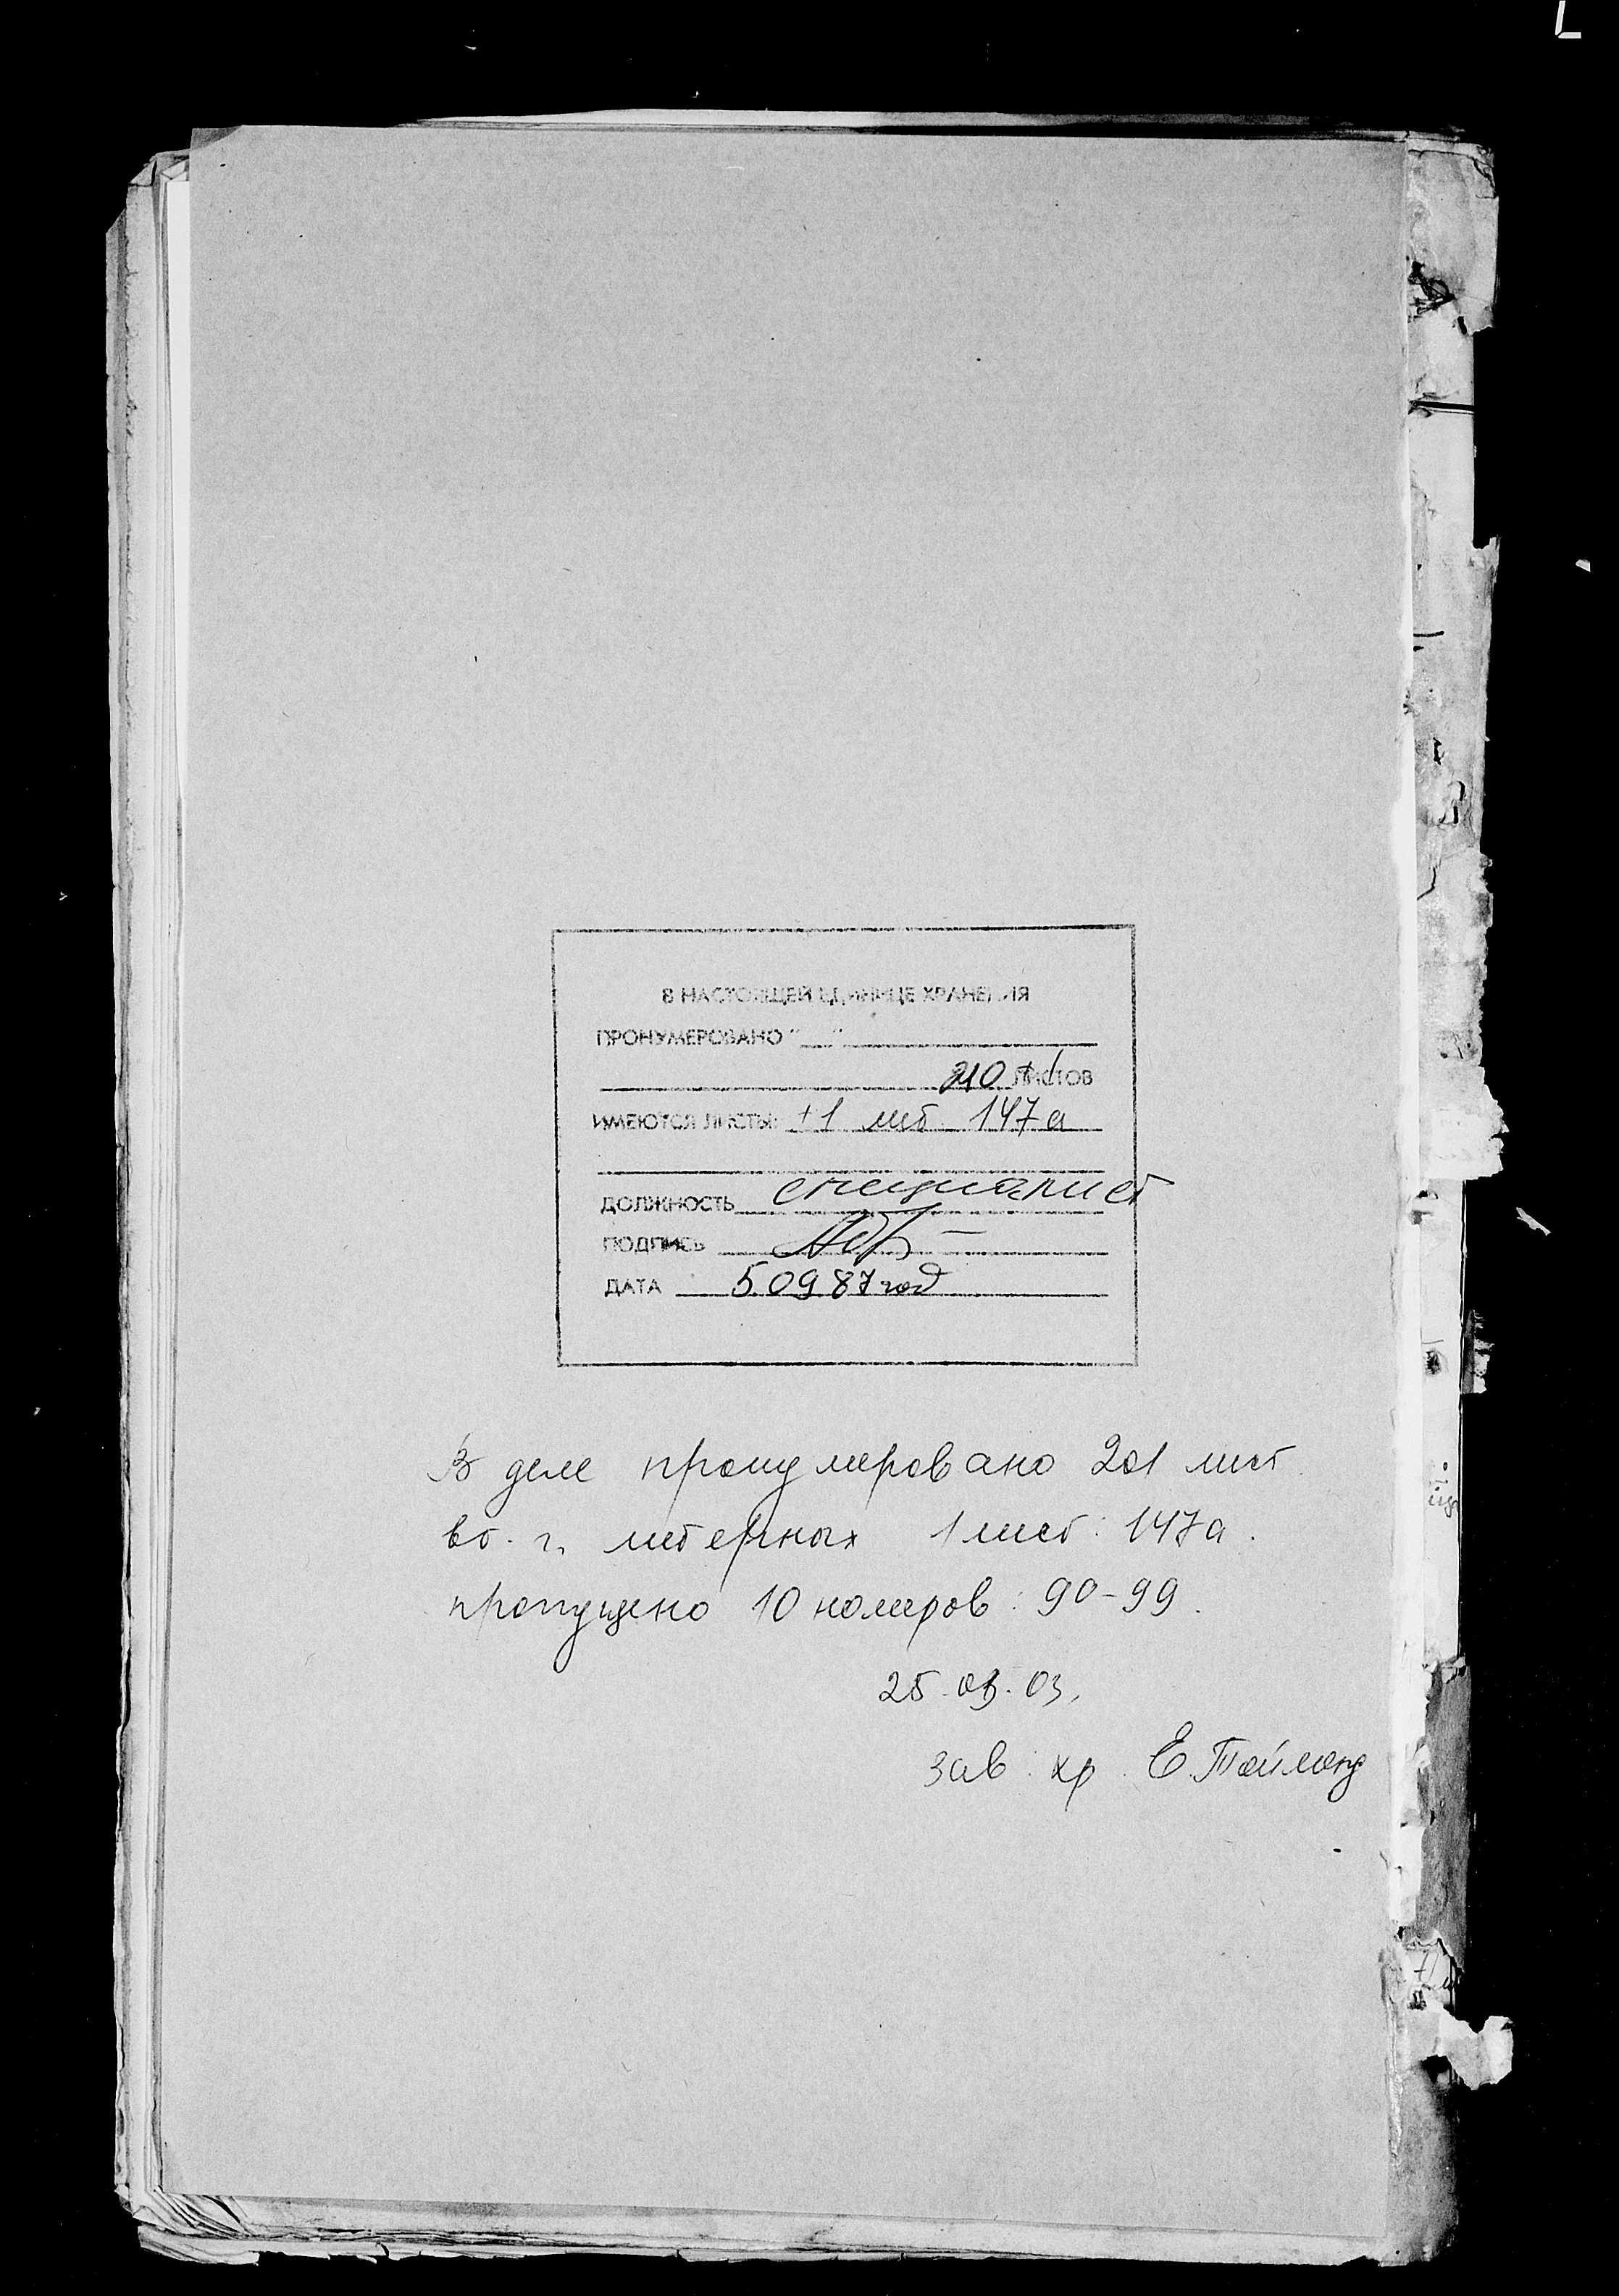 В НАСТОЯЩЕЙ ЕДИНИЦЕ ХРАНЕНИЯ
ПРОНУМЕРОВАНО "__"
210 + 1 ЛИСТОВ
ИМЕЮТСЯ ЛИСТЫ: +1 лит. 147а
ДОЛЖНОСТЬ специалист
ПОДПИСЬ
ДАТА 5.09 87 год
В деле пронумеровано 201 лист
в т. г. литерных 1 лист: 147а.
пропущено 10 номеров: 90-99.
25.03.03.
Зав. хр. Е.